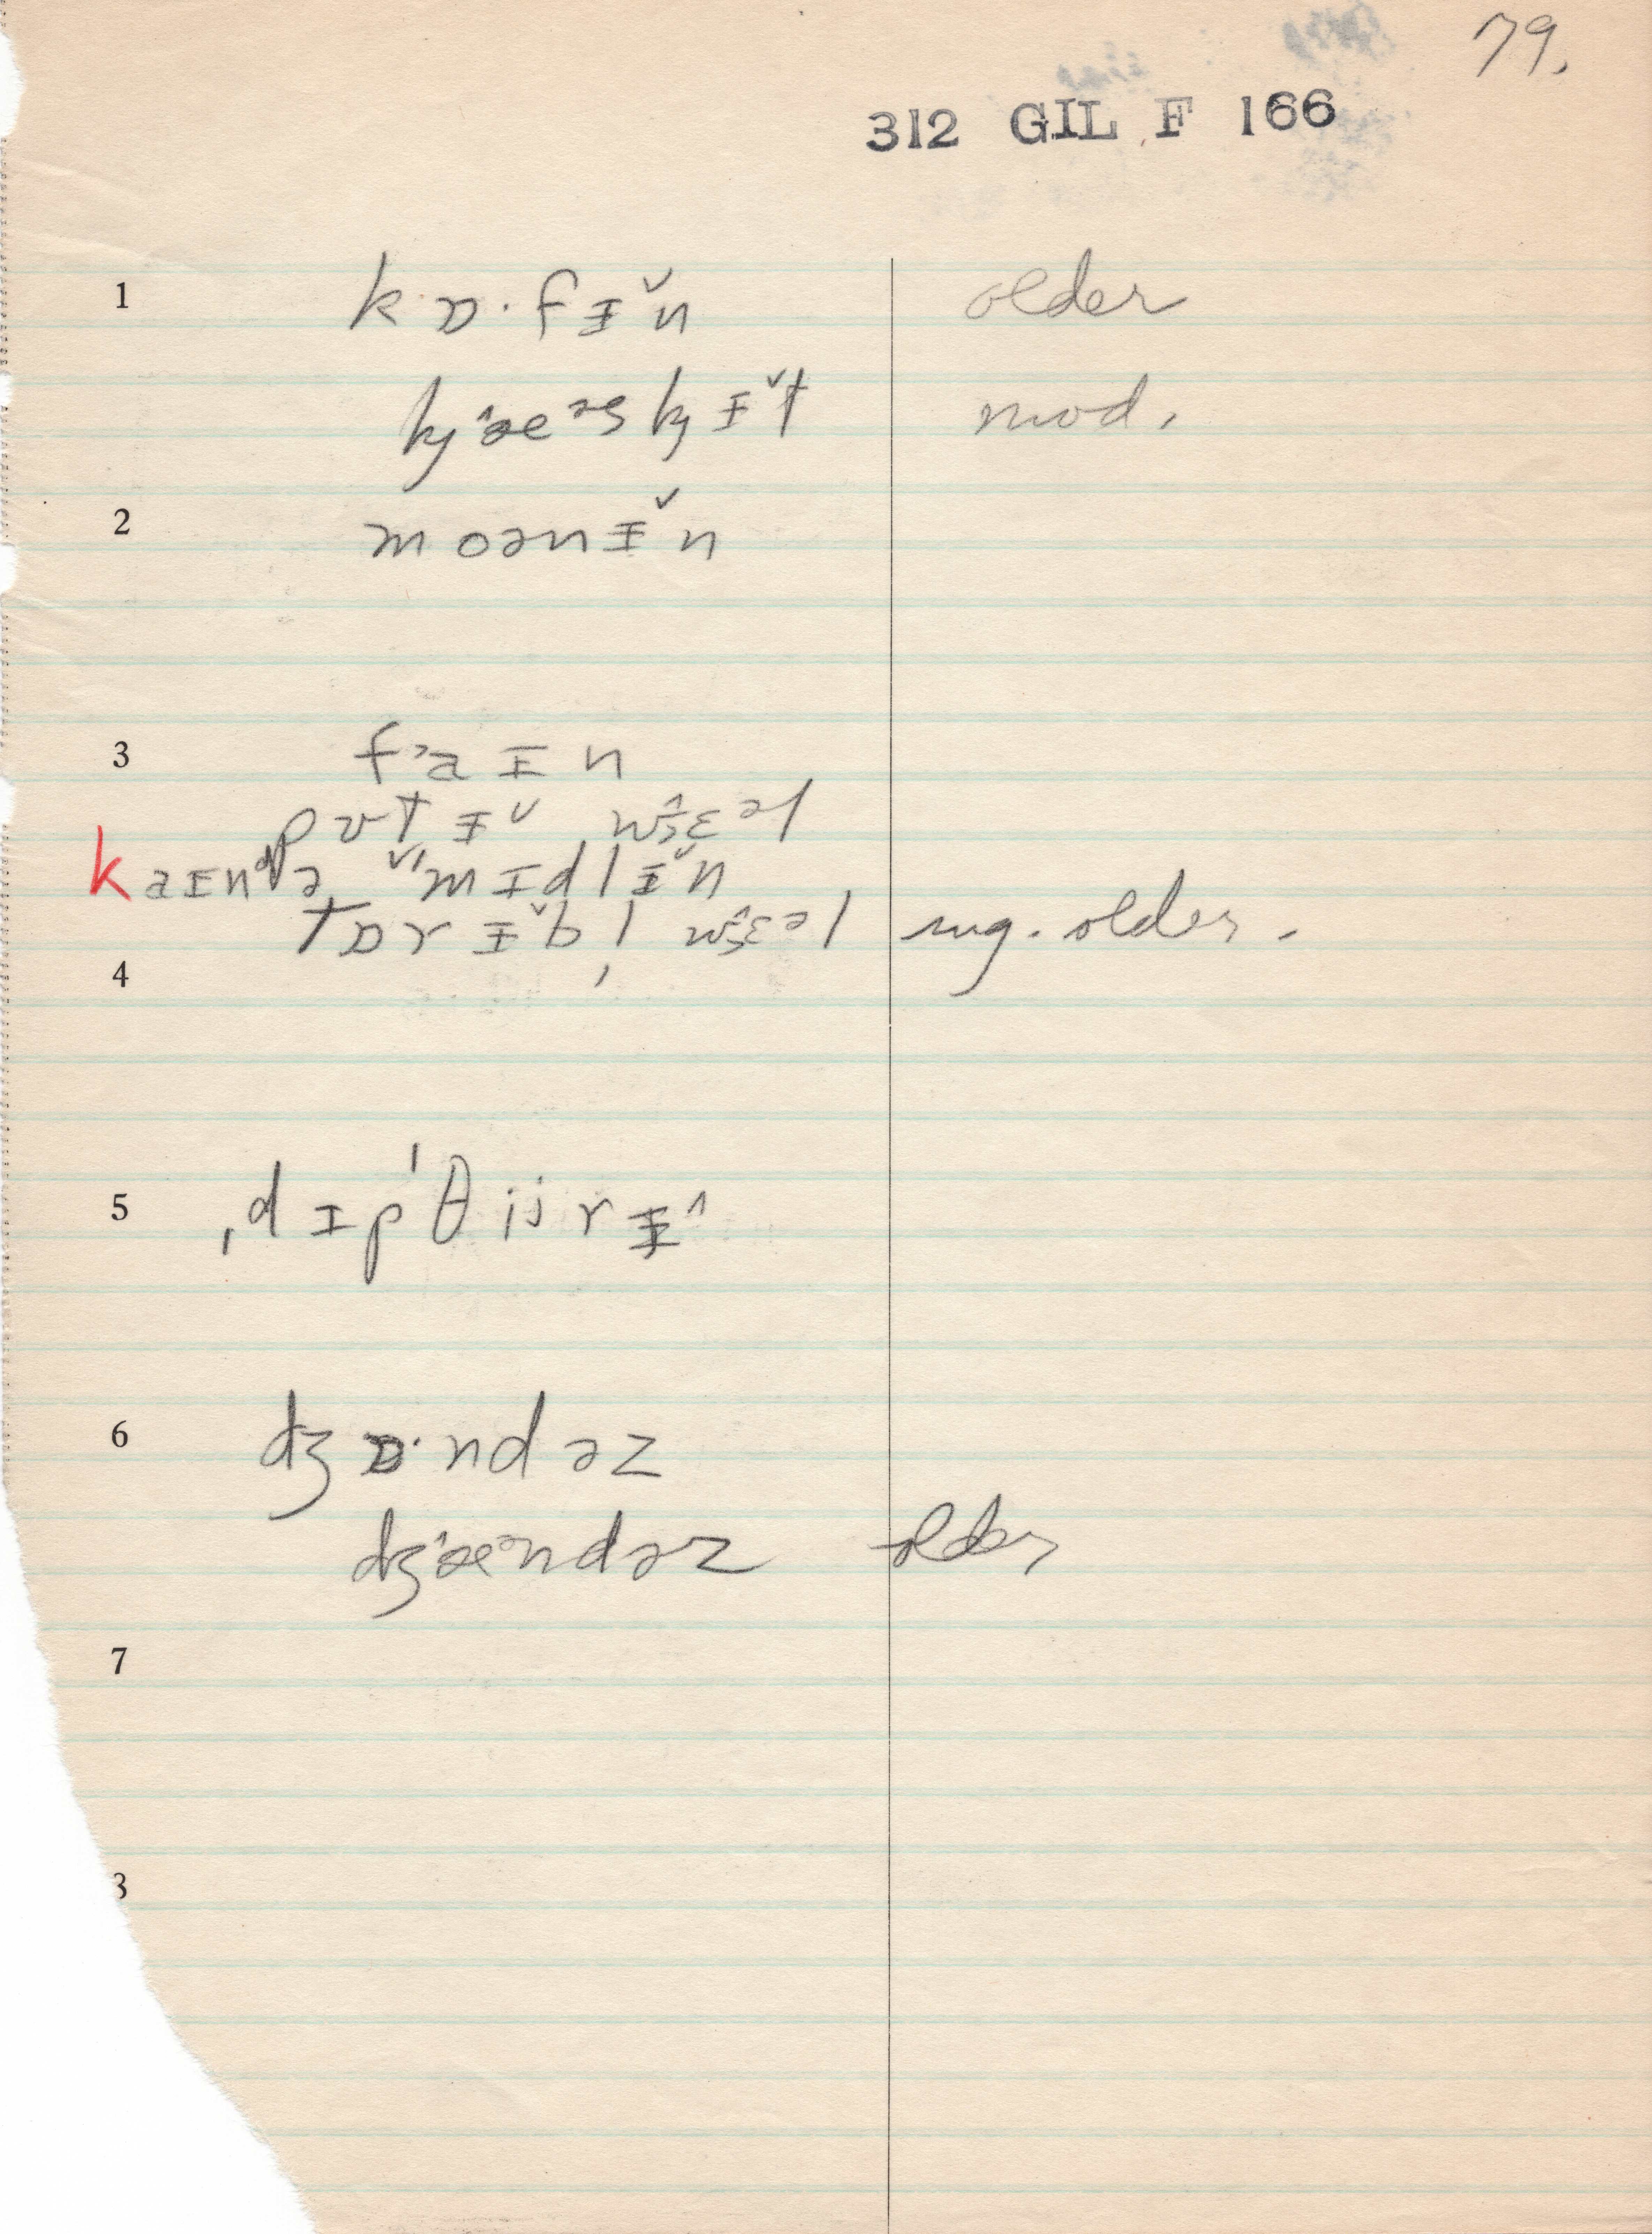 79.
312 GIL F 166
1 kɒ·fɨ̌n older
kj æ^əs kj ɨ̌t mod.
2 moənɨ̌n
3 f˃aɪn
pʊtɨˇ wɛ^əl
kaɪndə ˇˈmɪdlɨ̌n
tɒrɨ̌bl̩ wɛ^əl sug. older.
4
5 ˌdɪpˈθijrɨ^
6 dʒɒ·ndəz
dʒæ^əndəz older
7
8